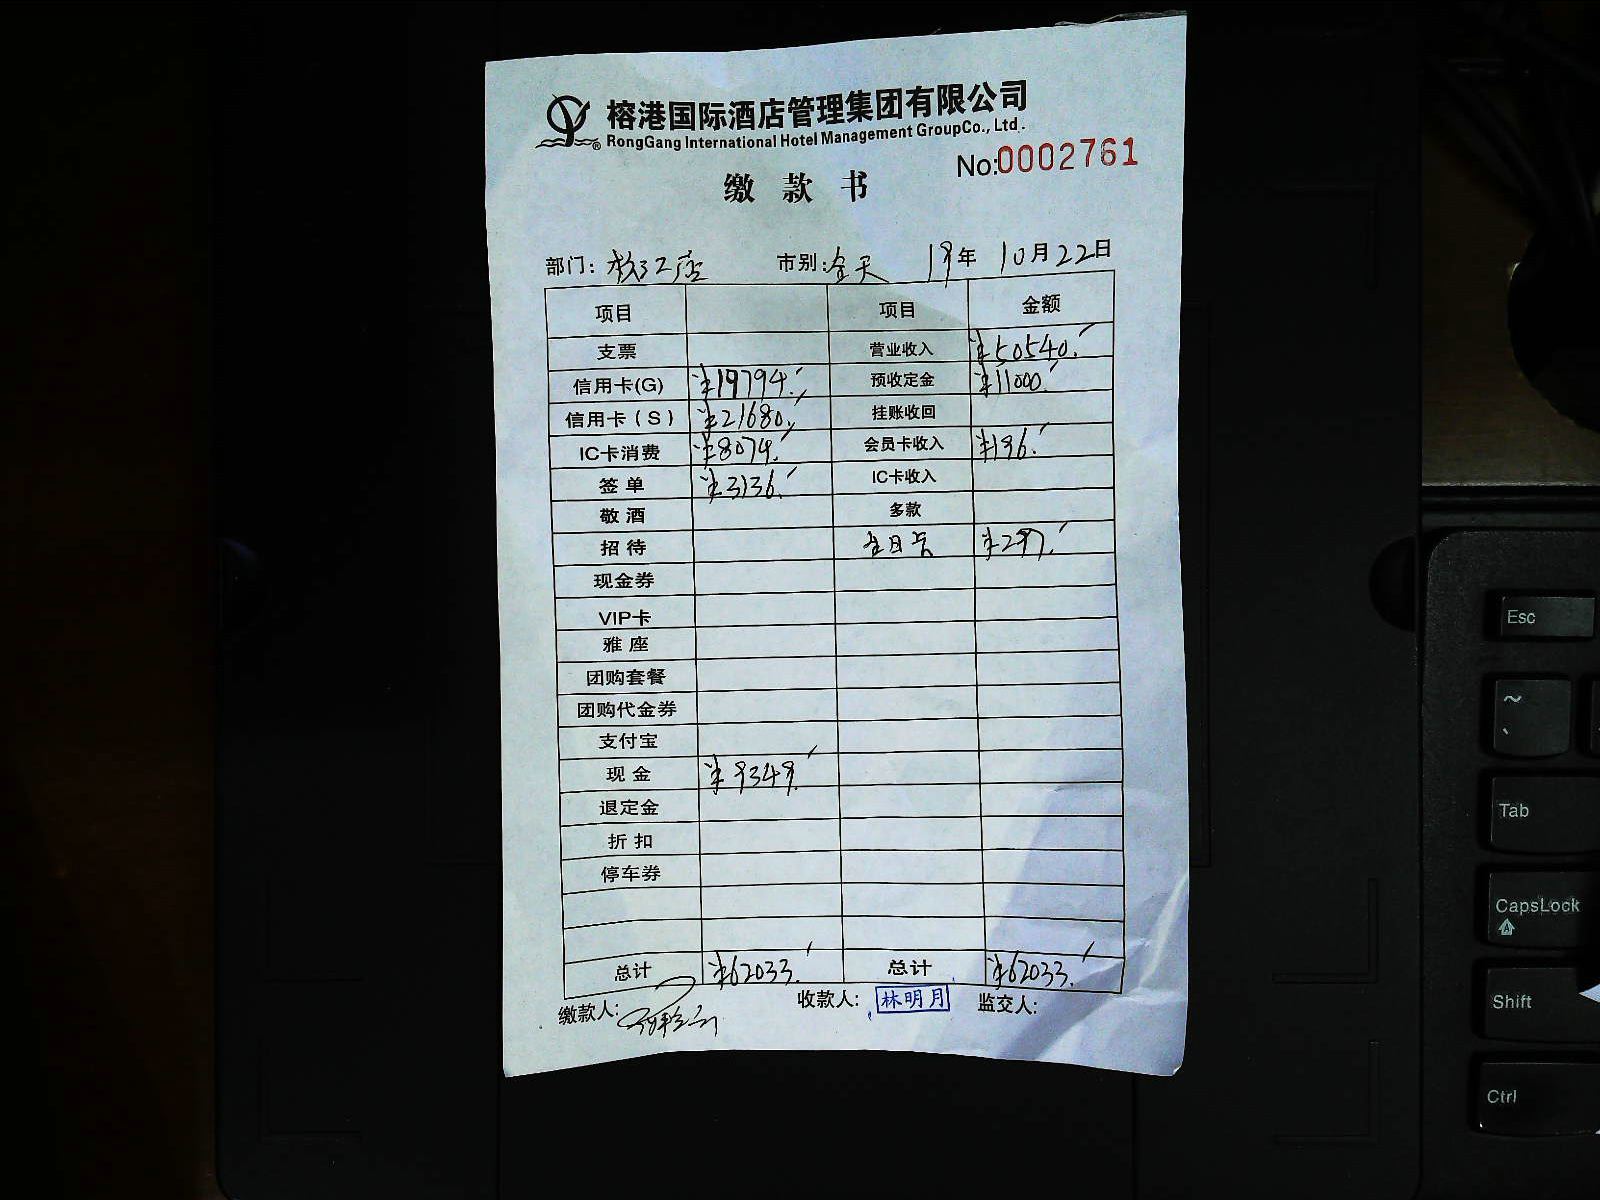 榕港国际酒店管理集团有限公司
RongGang International Hotel Management GroupCo., Ltd.
No:0002761
缴款书
部门：松江店 市别：全天 19年10月22日
项目 项目 金额
支票 营业收入 ¥50540.
信用卡(G) ¥19794. 预收定金 ¥11000.
信用卡（S） ¥21680. 挂账收回
IC卡消费 ¥8074. 会员卡收入 ¥196.
签单 ¥3136. IC卡收入
敬酒 多款
招待 ¥297.
现金券
VIP卡
雅座
团购套餐
团购代金券
支付宝
现金 ¥9349.
退定金
折扣
停车券
总计 ¥62033. 总计 ¥62033.
缴款人: 收款人: 林明月 监交人:
Esc
~
、
Tab
CapsLock
A
Shift
Ctrl